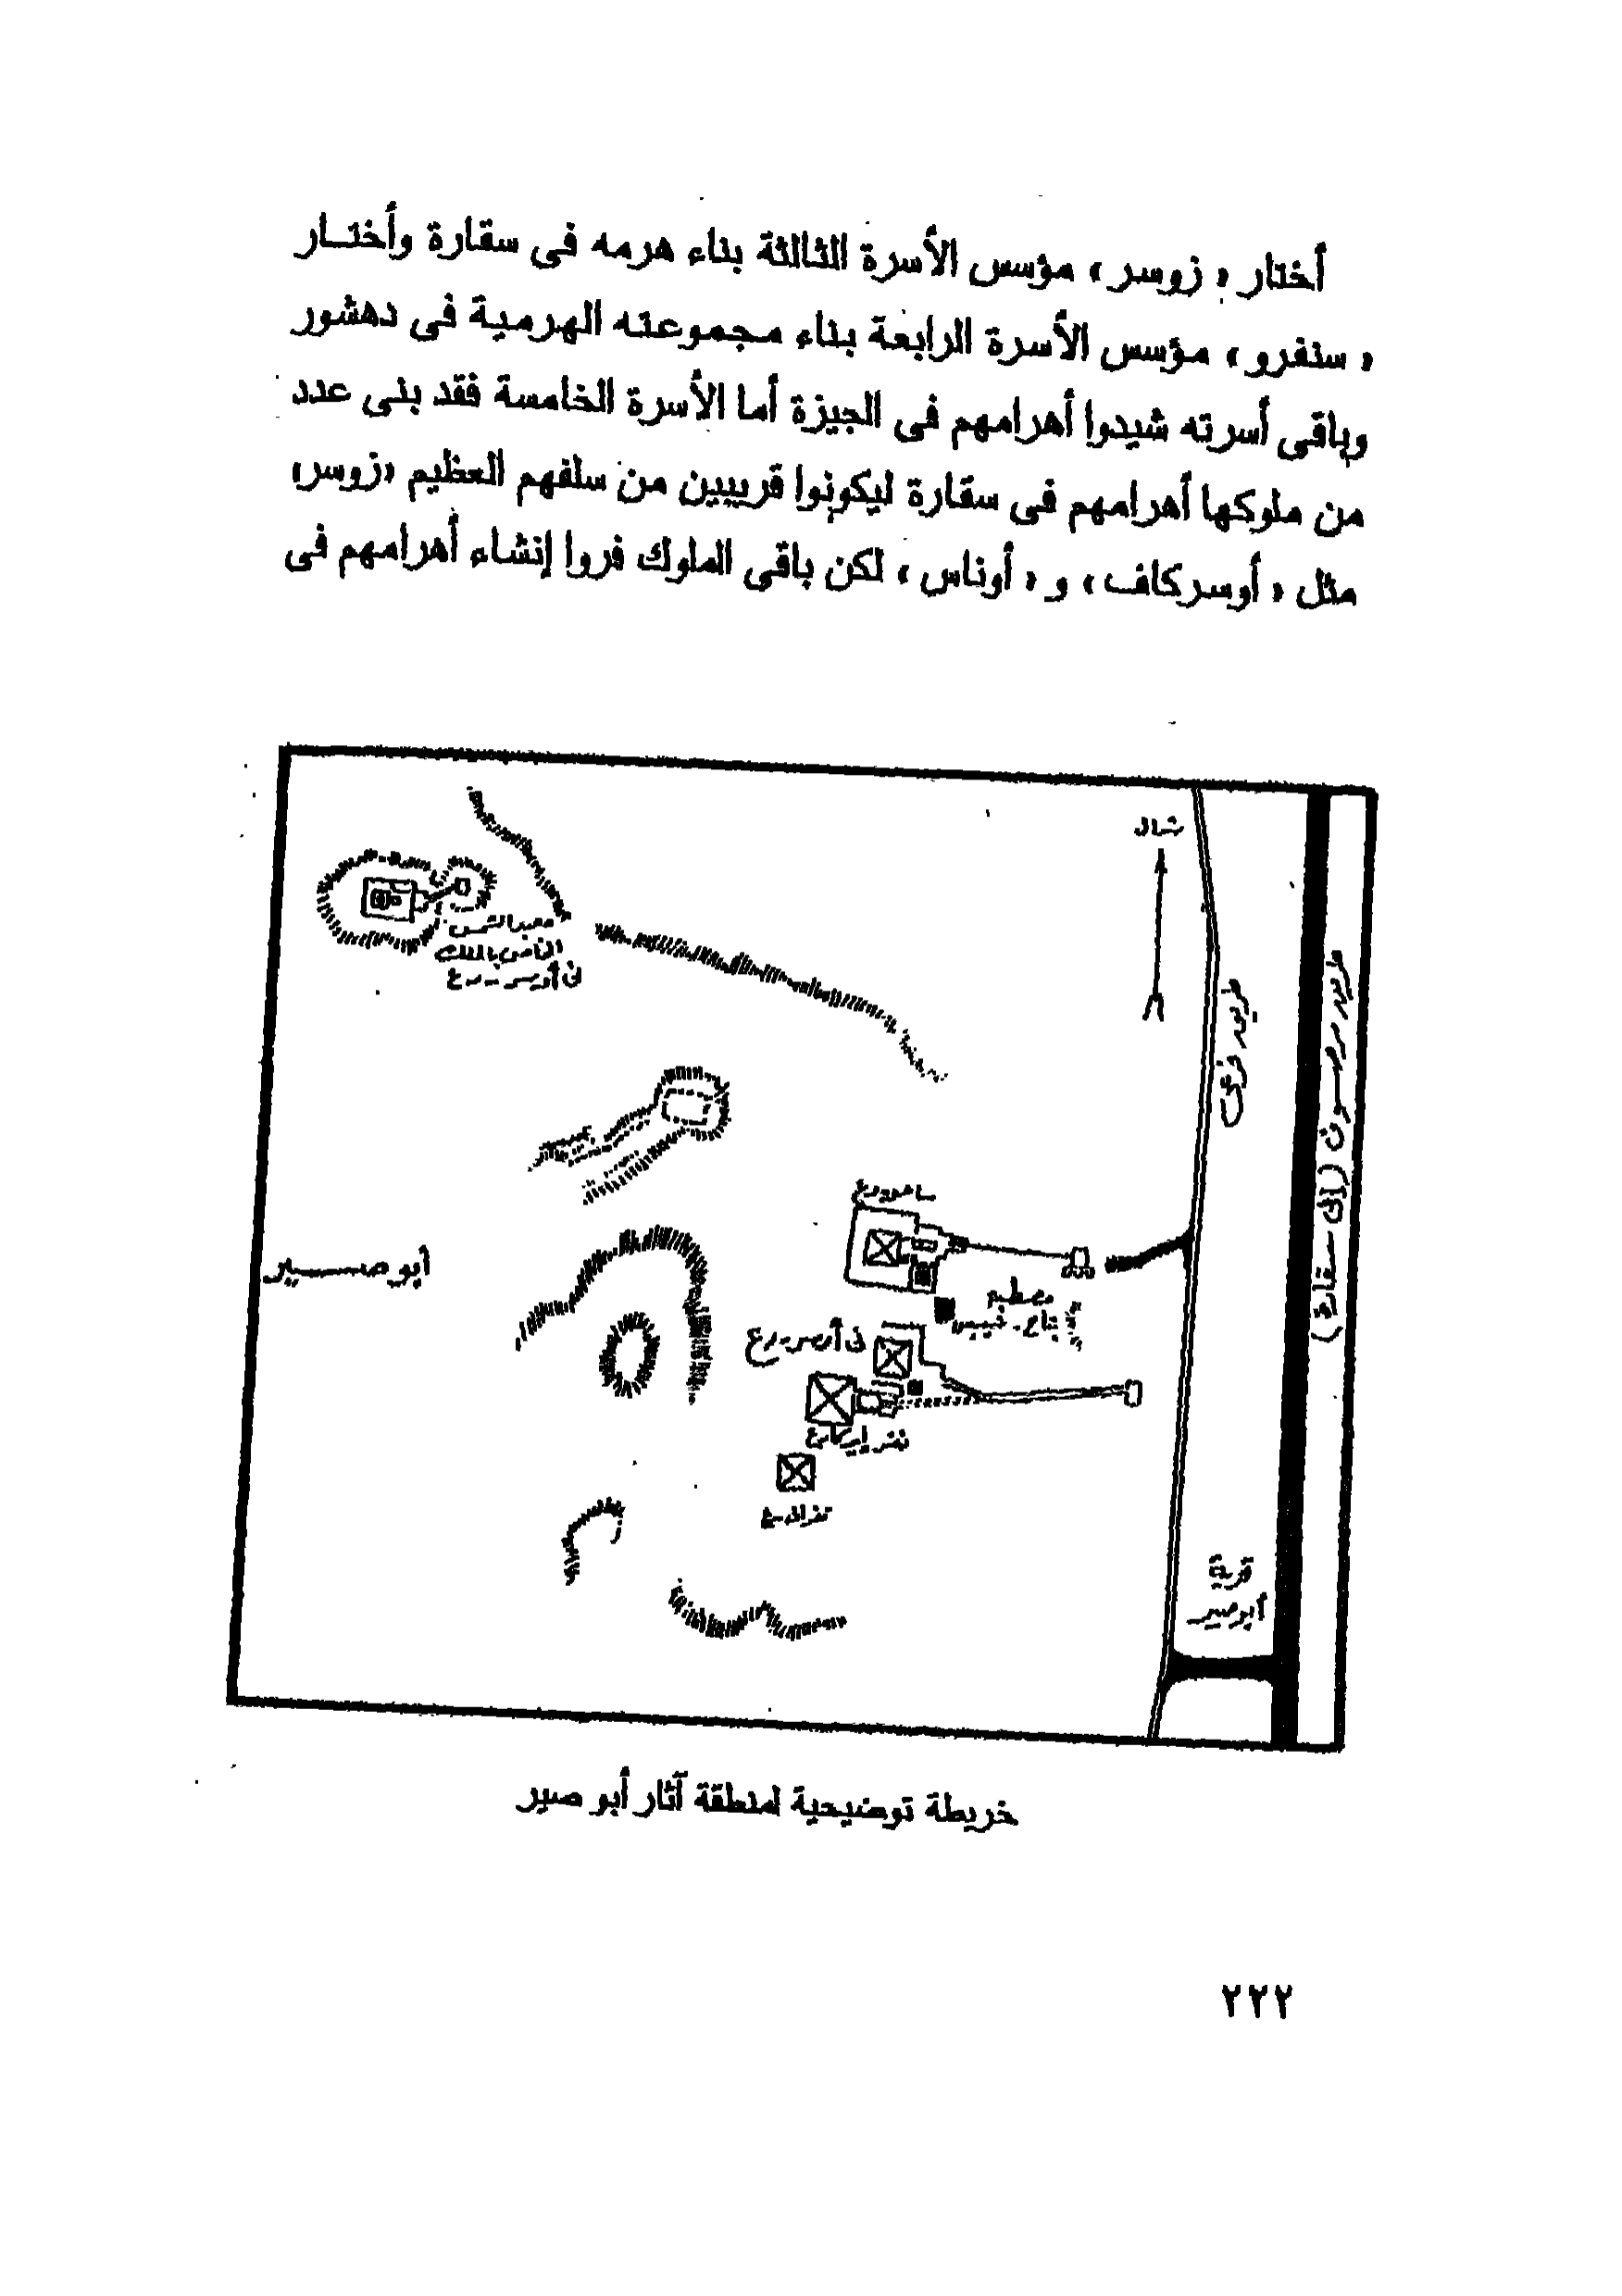 أختار « زوسر » مؤسس الأسرة الثالثة بناء هرمه فى سقارة وأختـار
« سنفرو » مؤسس الأسرة الرابعة بناء مجموعته الهرمية فى دهشور
وباقى أسرته شيدوا أهرامهم فى الجيزة أما الأسرة الخامسة فقد بنى عدد
من ملوكها أهرامهم فى سقارة ليكونوا قريبين من سلفهم العظيم «زوسر»
مثل « أوسركاف » و « أوناس » لكن باقى الملوك فروا إنشاء أهرامهم فى
شمال
معبد الشمس
الخاص بالملك
نى أوسر - رع
طريق فرعى
طريق مرصوف (إلى سقارة)
ساحورع
أبو صير
مصطبة
بتاح - شبسس
نى أوسر - رع
نفر إيركارع
نفر اف رع
قرية
أبوصير
خريطة توضيحية لمنطقة آثار أبو صير
٢٢٢